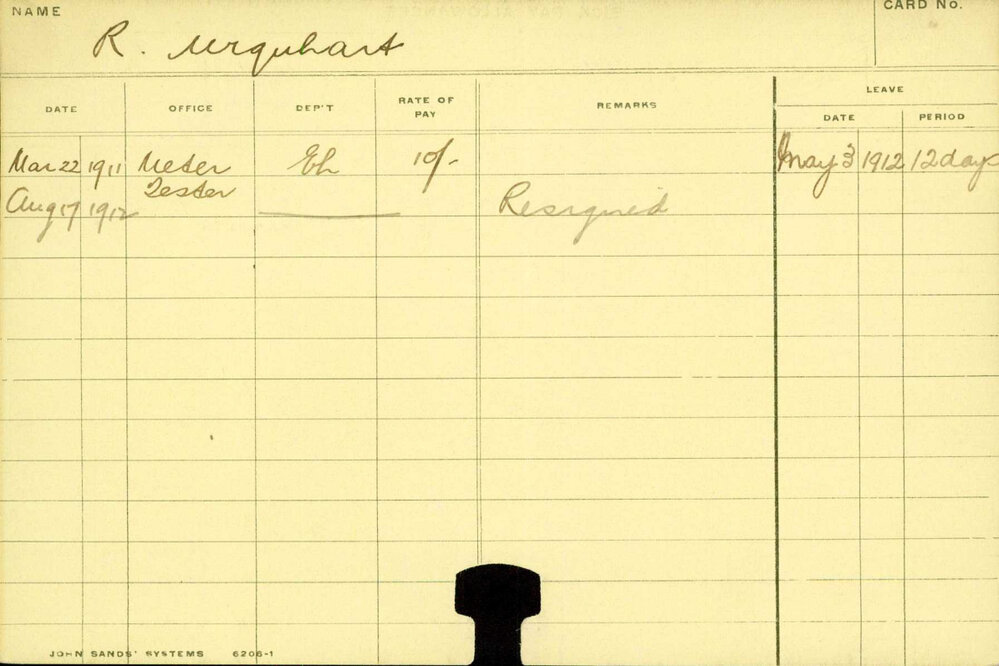 NAME
CARD No.
R. Urquhart
DATE OFFICE DEP'T RATE OF PAY REMARKS LEAVE
DATE PERIOD
Mar 22 1911 Meter 10/- May 3 1912 12 days
Tester
Aug 17 1912 Resigned
JOHN SANDS' SYSTEMS 6206-1